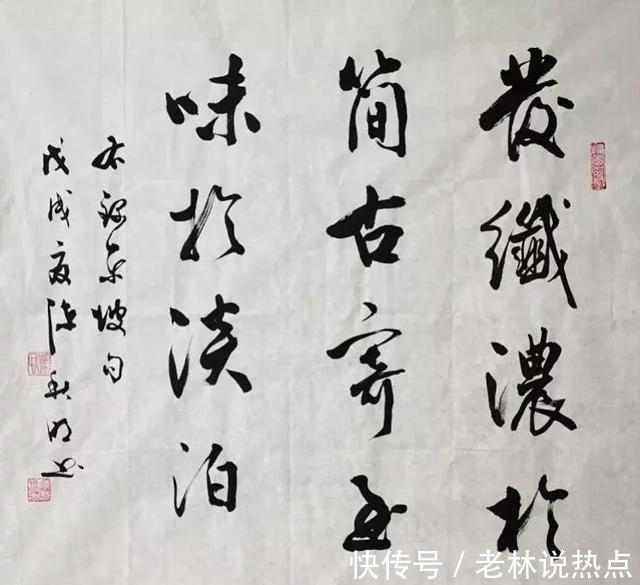 發纖濃於
簡古寄至
味於淡泊
右錄东坡句
戊戌夏陈秋明书
快传号 / 老林说热点